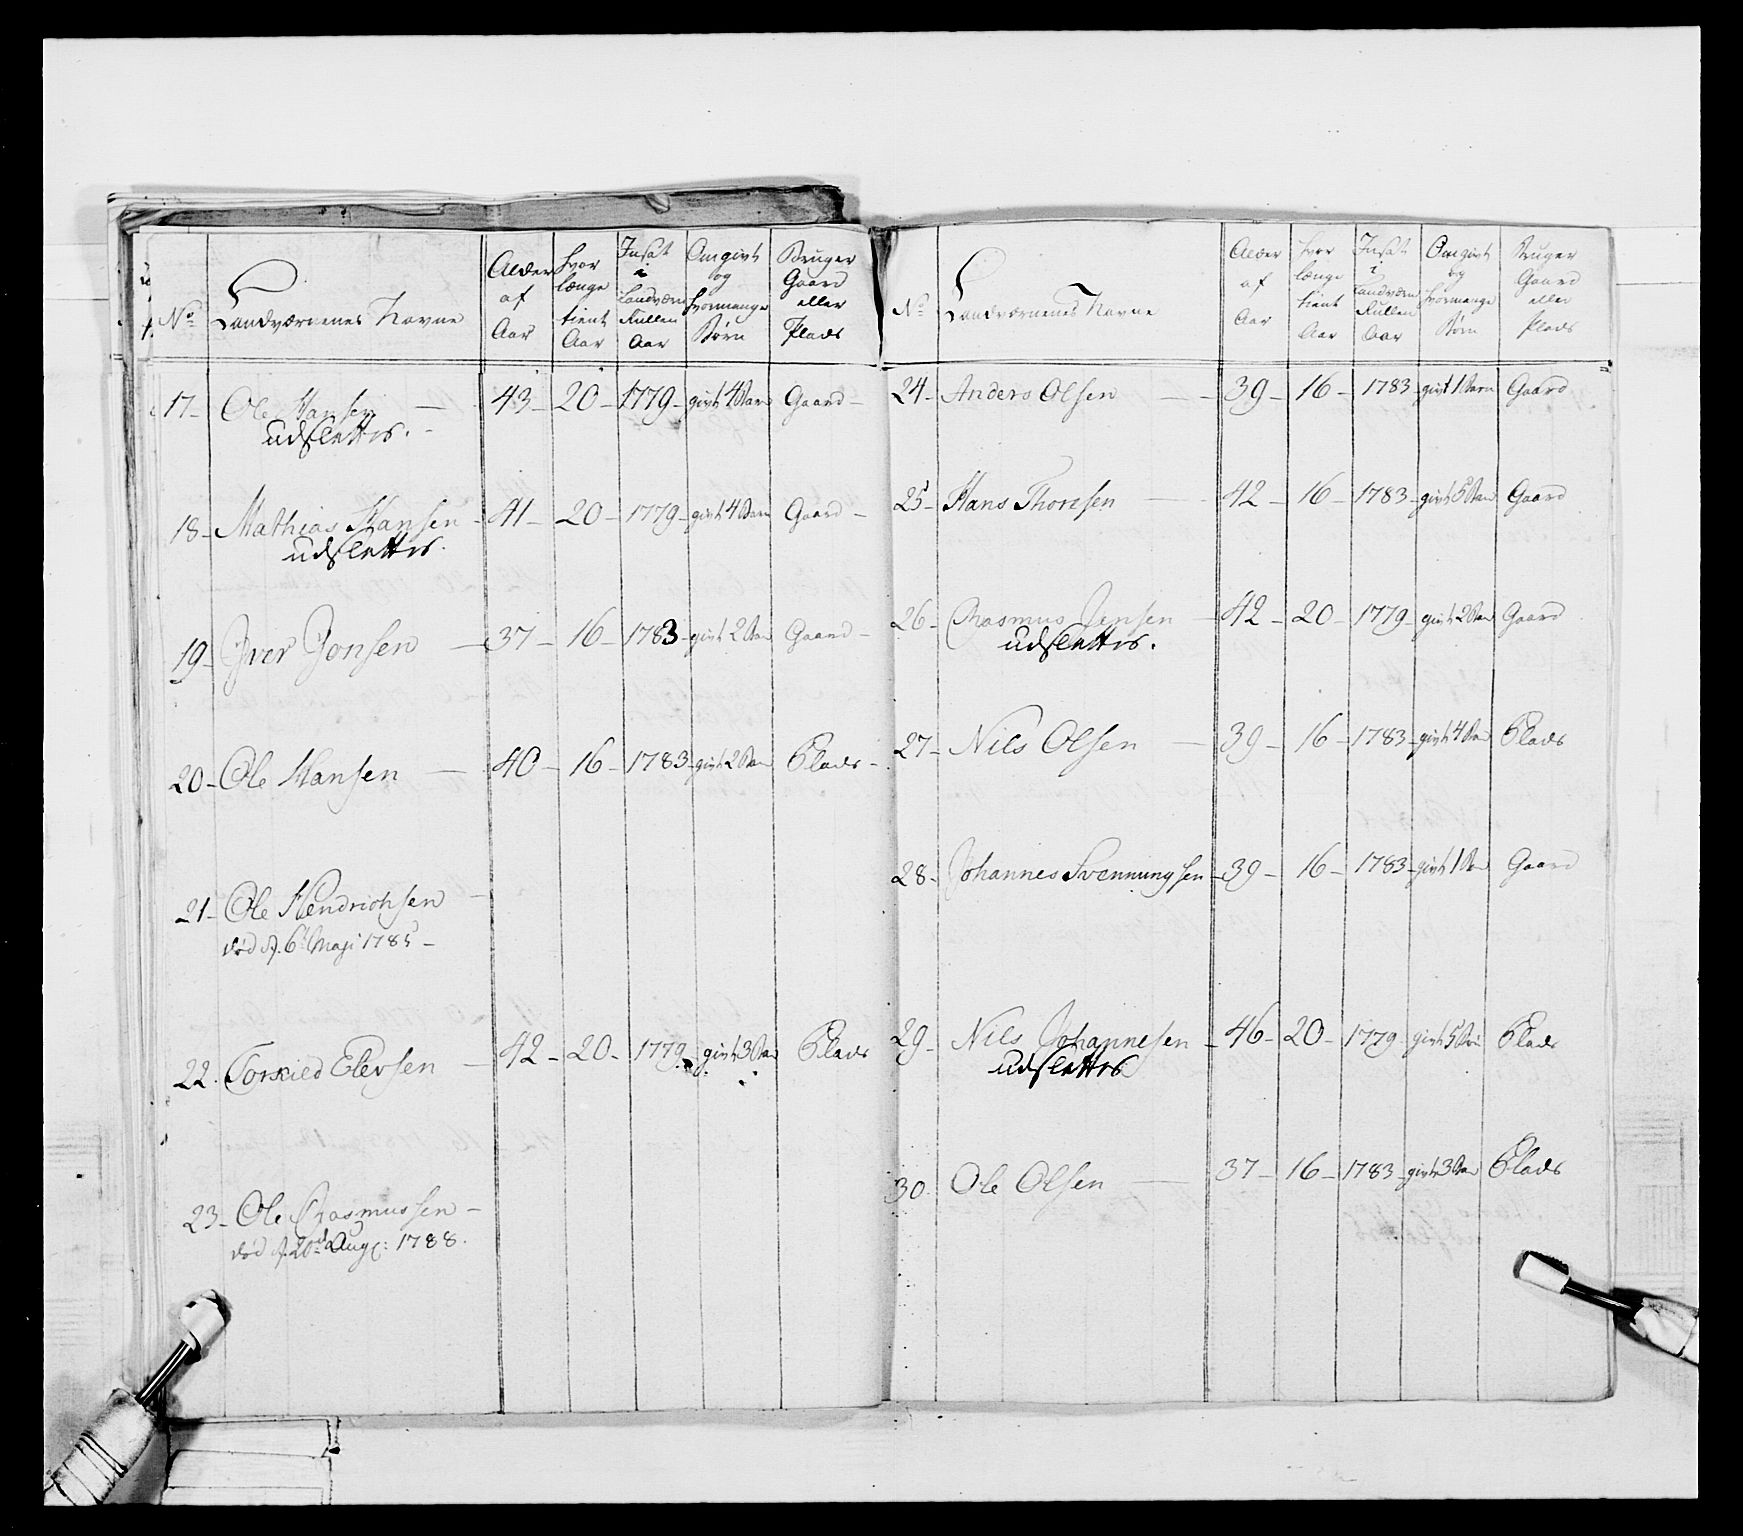 No. Landværnenes Navne Alder af Aar hvor længe tient Aar Indsat i Landværn Rullen Aar Om givt og hvormange Børn Bruger Gaard eller Plads
17 - Ole Hansen - 43 - 20 - 1779 - givt 4 Børn Gaard -
udslettes. -
18 - Mathias Hansen - 41 - 20 - 1779 - givt 4 Børn Gaard -
udslettes.
19 - Iver Jonsen - 37 - 16 - 1783 - givt 2 Børn Gaard -
20 - Ole Hansen - 40 - 16 - 1783 - givt 2 Børn Plads -
21 - Ole Hendrichsen -
død d. 6 Maji 1785 -
22. Torkild Elevsen - 42 - 20 - 1779 - givt 3 Børn Plads
23 - Ole Rasmussen -
død d. 20de Aug: 1788.
No. Landværnenes Navne Alder af Aar hvor længe tient Aar Indsat i Landværn Rullen Aar Om givt og hvormange Børn Bruger Gaard eller Plads
24 - Anders Olsen - 39 - 16 - 1783 - givt 1 Barn Gaard
25 - Hans Thoresen - 42 - 16 - 1783 - givt 5 Børn Gaard
26 - Rasmus Jensen - 42 - 20 - 1779 - givt 2 Børn Gaard
udslettes.
27 - Nils Olsen - 39 - 16 - 1783 - givt 4 Børn Plads
28 - Johannes Svenningsen - 39 - 16 - 1783 - givt 1 Barn Gaard
29 - Nils Johannesen - 46 - 20 - 1779 - givt 5 Børn Plads
udslettes
30. Ole Olsen - 37 - 16 - 1783 - givt 3 Børn Plads